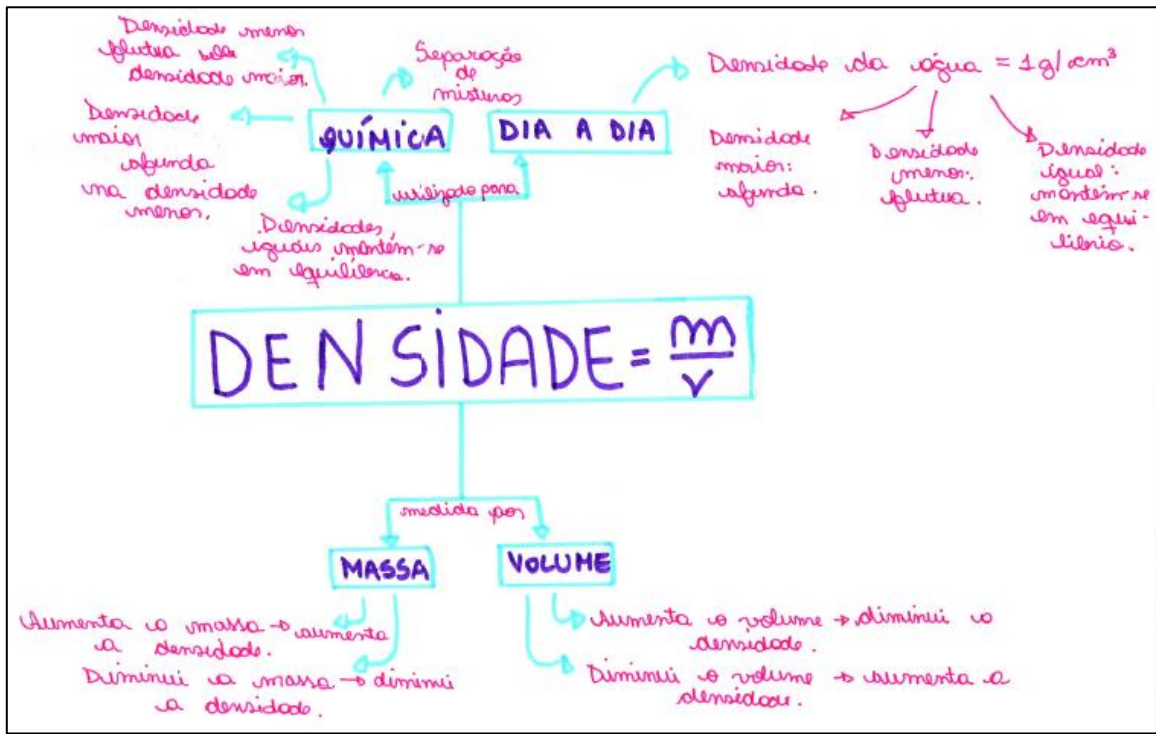 Densidade menor
flutua
densidade maior.
Separação
de
misturas
Densidade da água = 1g/cm³
Densidade
maior
afunda
na densidade
menor.
QUÍMICA
DIA A DIA
utilizado para
Densidade
maior:
afunda.
Densidade
menor:
flutua.
Densidade
igual:
mantém-se
em equi-
líbrio.
Densidades
iguais mantém-se
em equilíbrio.
DENSIDADE = m
v
medida por
MASSA
VOLUME
Aumenta a massa → aumenta
a densidade.
Diminui a massa → diminui
a densidade.
Aumenta o volume → diminui a
densidade.
Diminui o volume → aumenta a
densidade.